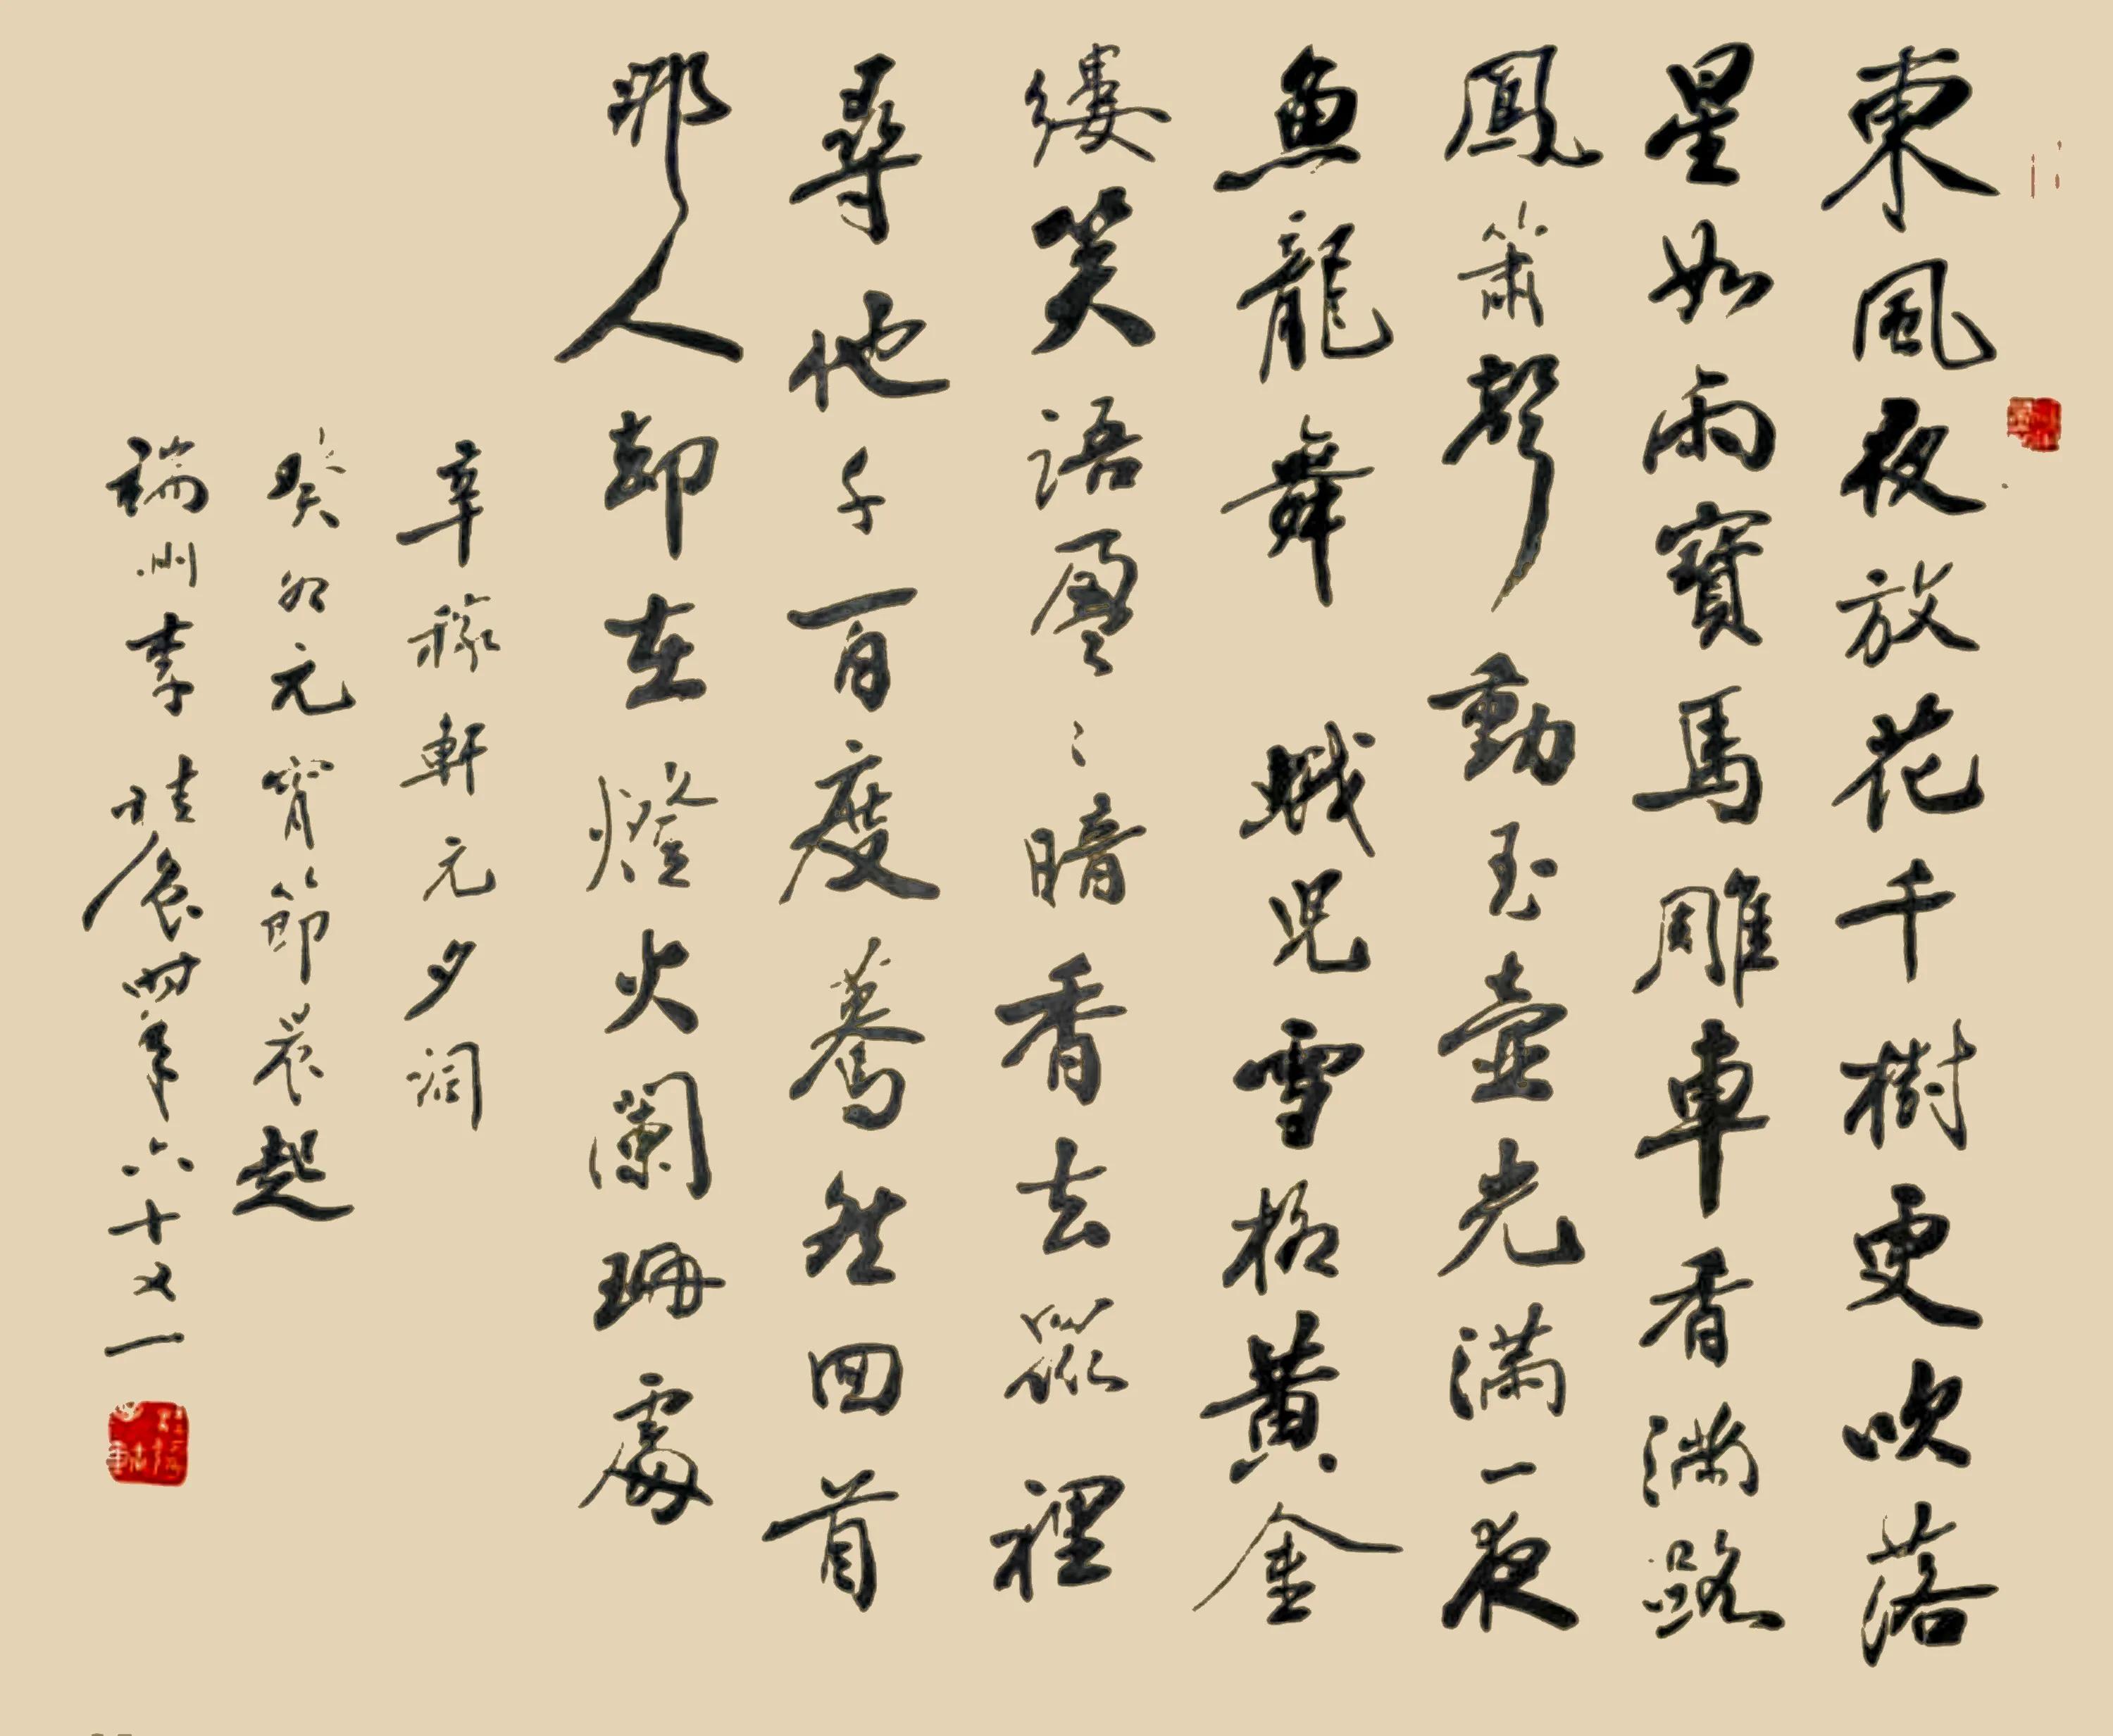 東風夜放花千樹更吹落
星如雨寶馬雕車香滿路
鳳簫聲動玉壺光滿一夜
魚龍舞 蛾兒雪柳黃金
縷笑語盈〻暗香去眾裡
尋他千百度驀然回首
那人卻在燈火闌珊處
辛稼軒元夕詞
癸卯元宵節晨起
瑞州李桂時年六十又一